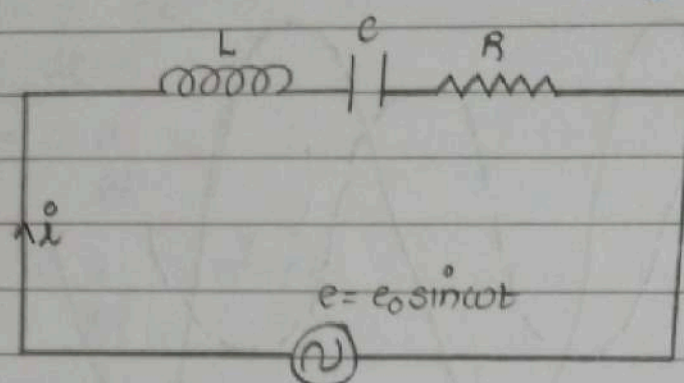 L C R
i
e = e₀ sinωt